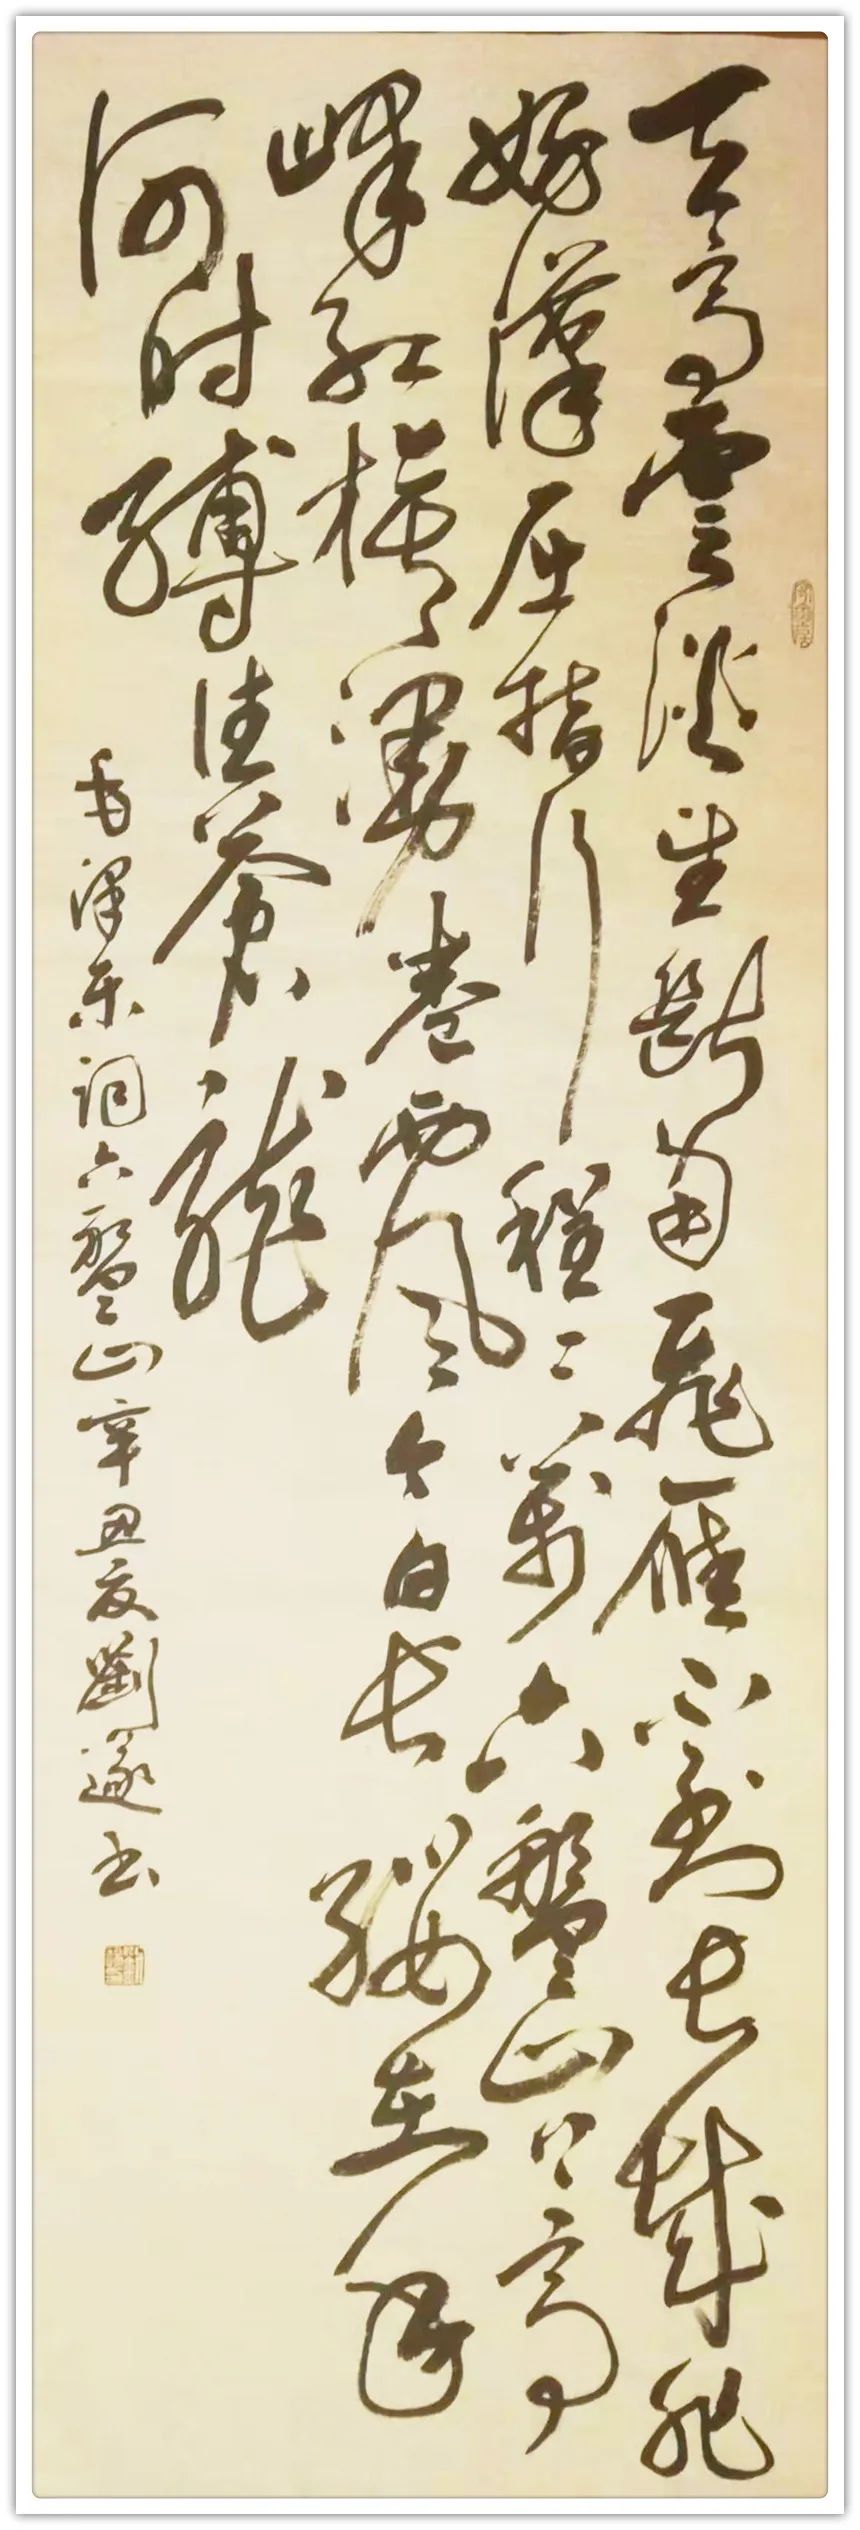 天高雲淡望斷南飛雁不到長城非
好漢屈指行程二萬六盤山上高
峰紅旗漫卷西风今日長纓在手
何时縛住蒼龍
毛澤东詞六盤山辛丑夏劉遂书